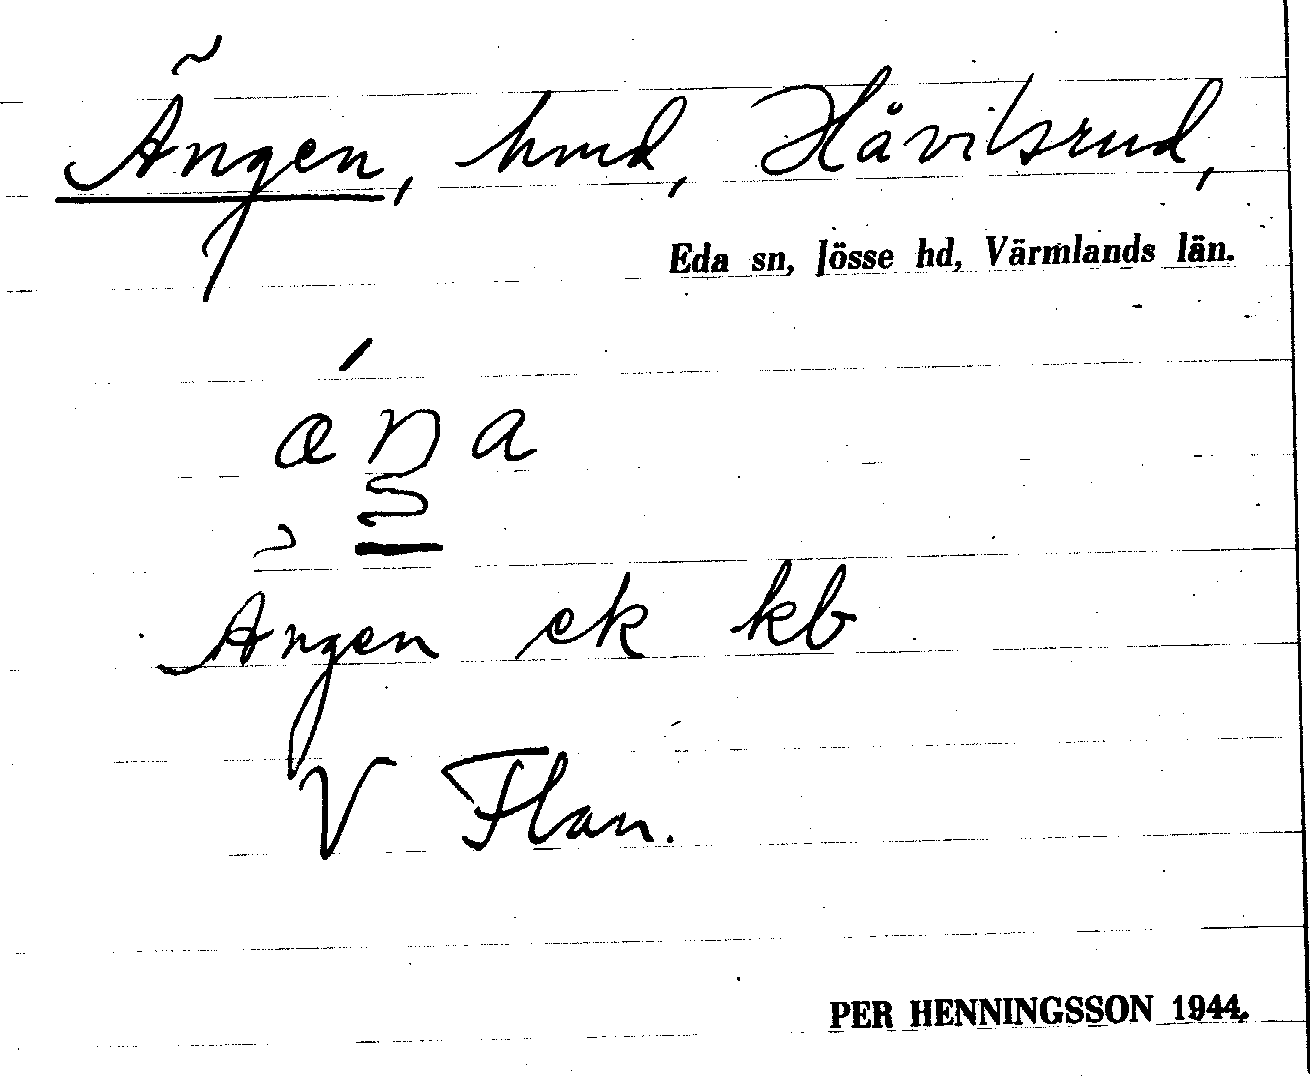 Ängen, hmd, Håvilsrud,
Eda sn, Jösse hd, Värmlands län.
Ängen ek kb
V Flan.
PER HENNINGSSON 1944.